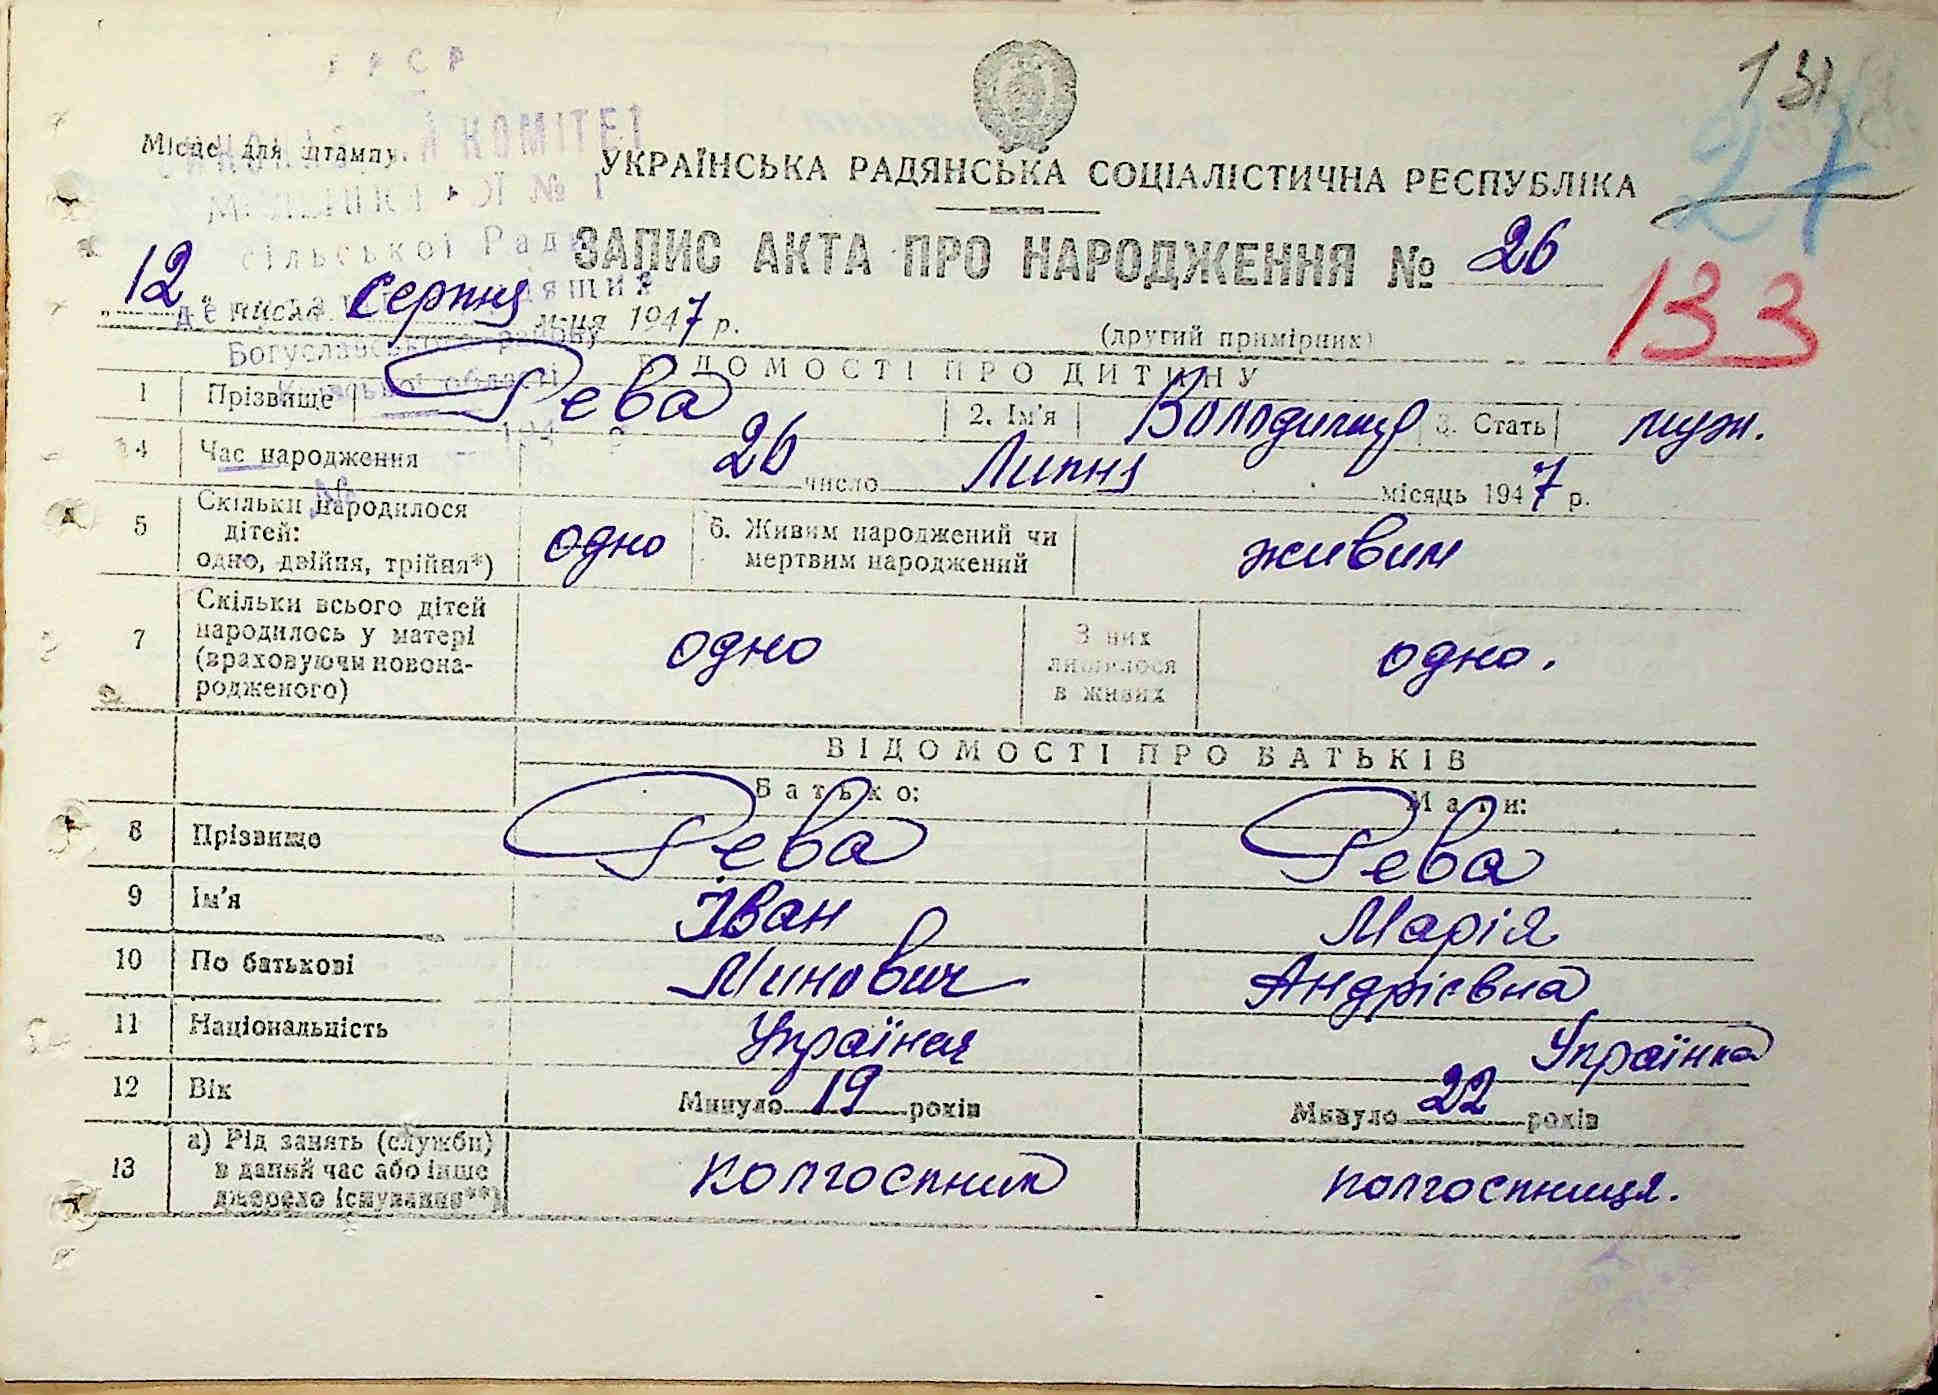 УРСР
134
Місце для штампу.
КОМІТЕТ
УКРАЇНСЬКА РАДЯНСЬКА СОЦІАЛІСТИЧНА РЕСПУБЛІКА
27
№ 1
сільської Ради
ЗАПИС АКТА ПРО НАРОДЖЕННЯ № 26
133
„12“ числа серпня м-ця 1947 р.
(другий примірник)
Богуславського району
області
ВІДОМОСТІ ПРО ДИТИНУ
1 Прізвище Рева 2. Ім'я Володимир 3. Стать муж.
4 Час народження 26 число Липня місяць 1947 р.
5 Скільки народилося дітей: одно, двійня, трійня*) одно 6. Живим народжений чи мертвим народжений живим
7 Скільки всього дітей народилось у матері (враховуючи новонародженого) одно З них лишилося в живих одно.
ВІДОМОСТІ ПРО БАТЬКІВ
Батько: Мати:
8 Прізвище Рева Рева
9 Ім'я Іван Марія
10 По батькові Минович Андрієвна
11 Національність Українец Українка
12 Вік Минуло 19 років Минуло 22 років
13 а) Рід занять (служби) в даний час або інше джерело існування**) колгоспник колгоспниця.